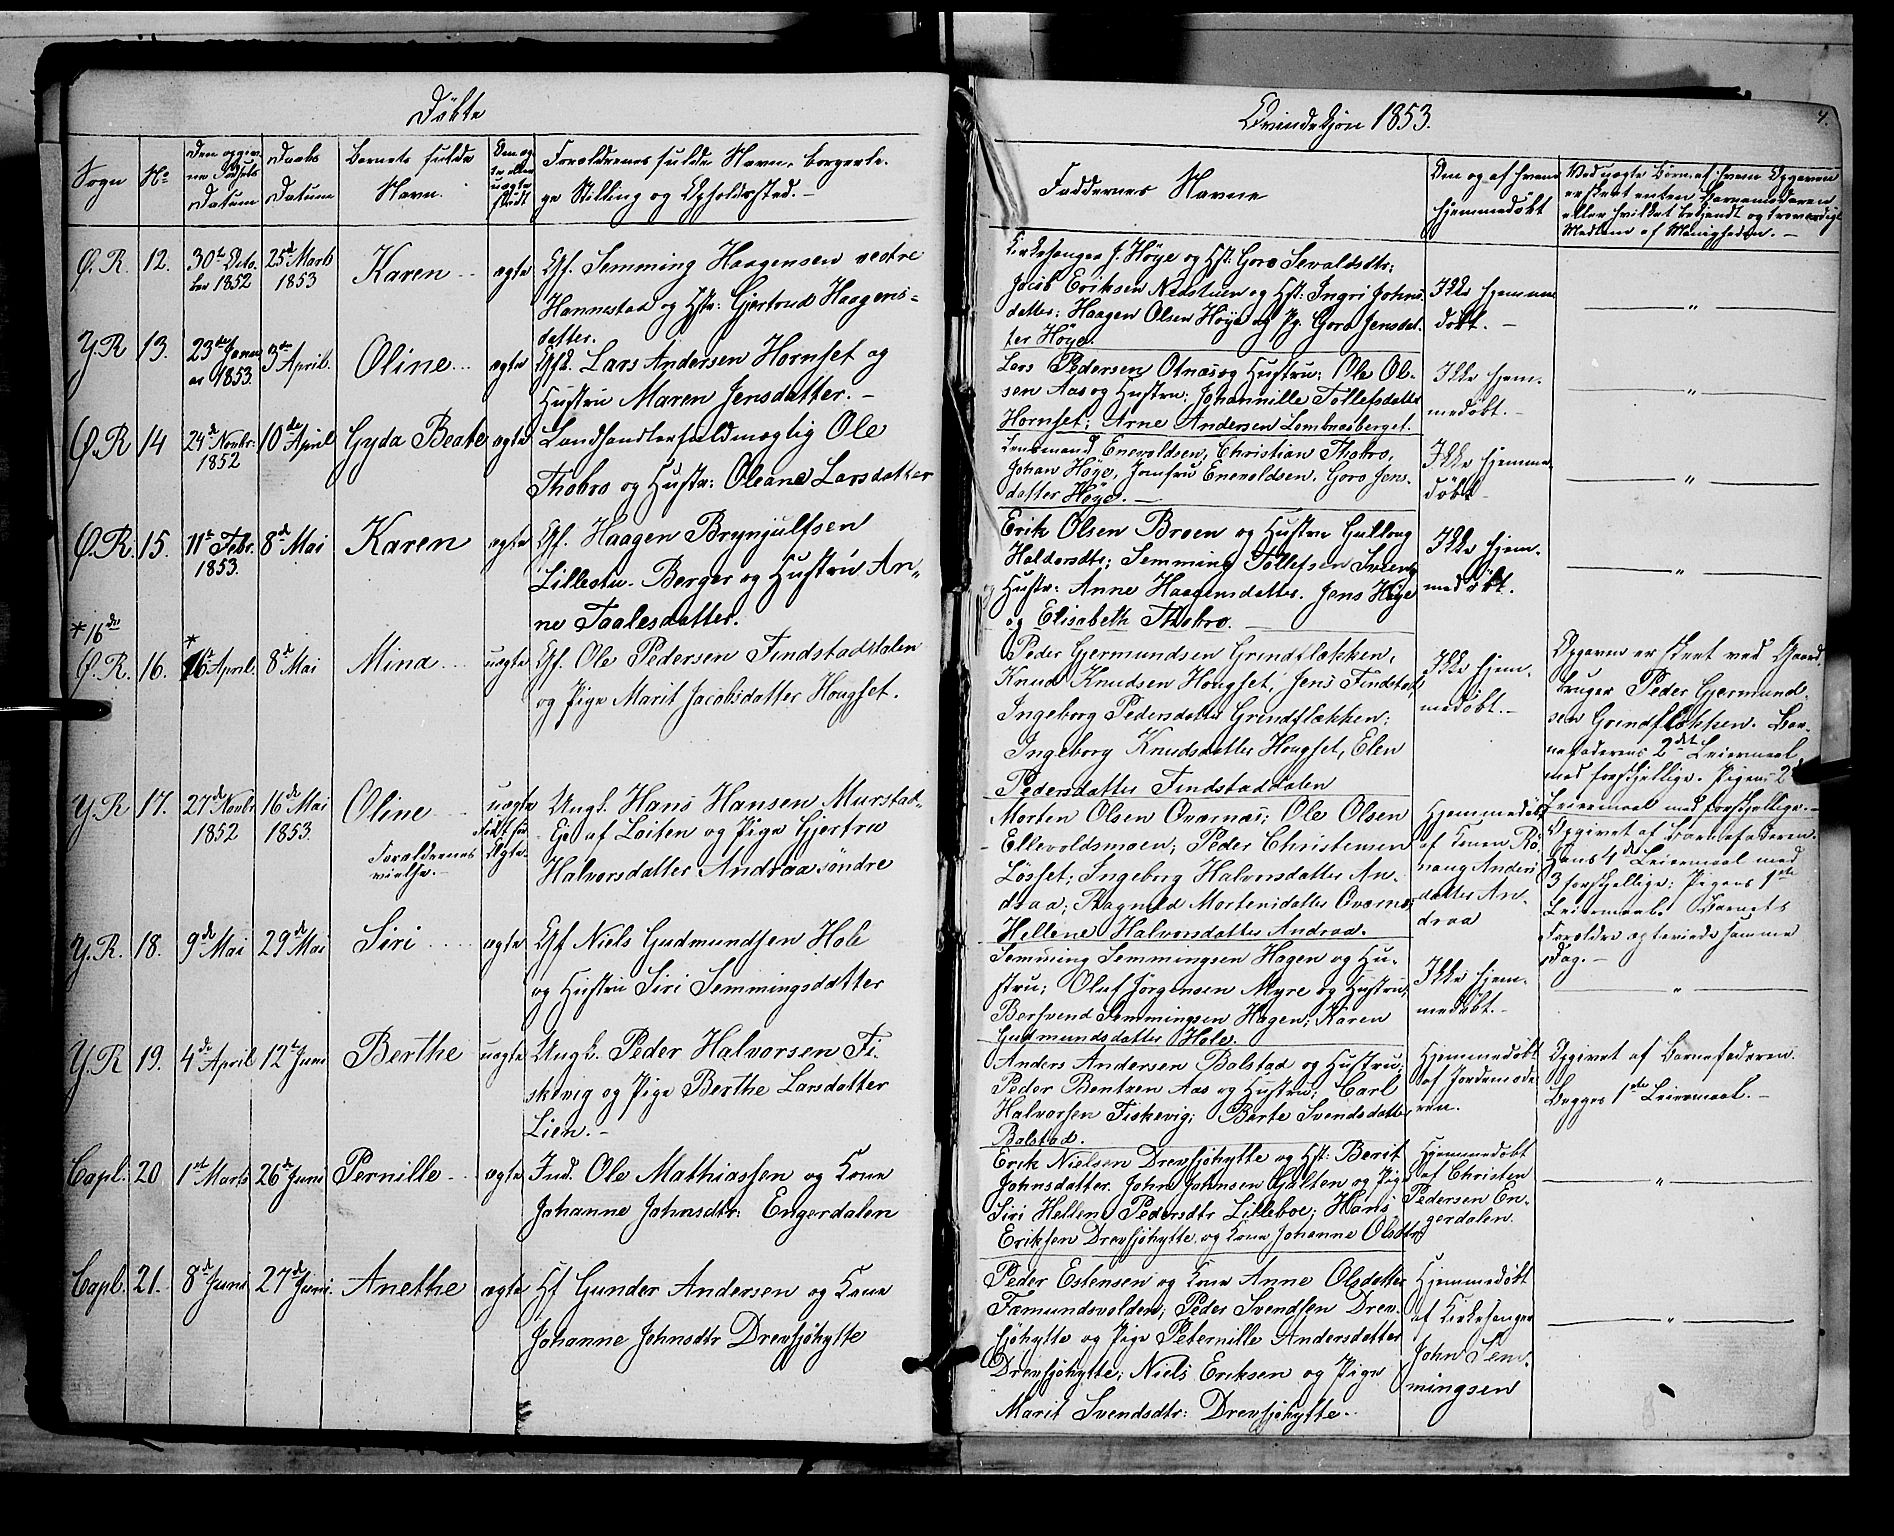 Döbte
Qvindekjön 1853.
4.
Sogn
No
Den opgiv-
ne Födsels
Datum
Daabs
Datum
Barnets fulde
Navn.
Om æg-
te eller
uægte
födt
Forældrenes fulde Navn, borgerli-
ge Stilling og Opholdssted. –
Faddernes Navne
Om og af hvem
hjemmedöbt
Ved uægte Börn, af hvem Opgaven
er skeet enten Barnemoderen
eller hvilket bekjendt og troværdigt
Medlem af Menigheden. –
Ø. R. 12. 30te Octo-
ber 1852
25de Marts
1853
Karen
ægte
Gf. Semming Haagensen vestre
Hannestad og Hstr: Gjertrud Haagens-
datter.
Kirkesanger J. Höye og Hst: Goro Sevaldsdtr;
Jacob Eriksen Nedstuen og Hst: Ingri Johns-
datter; Haagen Olsen Höye og Pg. Goro Jensdat-
ter Höye.
Ikke hjemme-
döbt. –
"
Y. R 13. 23de Janu-
ar 1853.
3de April.
Oline
ægte
Gf. Lars Andersen Hornset og
Hustru Maren Jensdatter. –
Lars Pedersen Otnæs og Hustru; Ole Ol-
sen Aas og Hustru; Johannille Tollefsdatter
Hornset; Arne Andersen Lombnæsberget.
Ikke hjem-
medöbt. –
"
Ø. R 14 24de Novbr:
1852
10de April
Gyda Beate
ægte
Landhandlerfuldmægtig Ole
Thobro og Hustr: Oleane Larsdatter
Lensmand Enevoldsen, Christian Thobro,
Johan Höye, Jomfru Enevoldsen, Goro Jens-
datter Höye. –
Ikke hjemme-
döbt
"
Ø. R. 15. 11te Febr.
1853.
8de Mai
Karen
ægte
Gf. Haagen Brynjulfsen
Lillestu. Berger og Hustru An-
ne Taalesdatter.
Erik Olsen Broen og Hustru Gullaug
Haldorsdtr; Semming Tollefsen Sveeng
Hustr: Anne Haagensdatter. Jens Höye
og Elisabeth Thobro. –
Ikke hjem-
medöbt.
"
* 16de
Ø. R. 16. * 16 April. 8de Mai
Mina
uægte
Gf. Ole Pedersen Findstadstalen
og Pige Marit Jacobsdatter Hougset.
Peder Gjermundsen Grindflækken,
Knud Knudsen Hougset, Jens Findstad,
Ingeborg Pedersdatter Grindflækken;
Ingeborg Knudsdatter Hougset, Elen
Pedersdatter Findstaddalen
Ikke hjem-
medöbt. –
Opgaven er skeet ved Gaard-
bruger Peder Gjermund-
sen Grindflækken. Bar-
nefaderens 2det Leiermaal
med forskjellige. Pigens 2
Leiermaal med forskjellige. –
Y. R 17. 27de Novbr
1852
16de Mai
1853
Oline
Forældrenes
vielse. –
uægte
födt för
Ungk. Hans Hansen Murstad-
Eie af Löiten og Pige Gjertru
Halvorsdatter Andraa söndre
Morten Olsen Qværnæs; Ole Olsen
Ellevoldsmoen; Peder Christensen
Lösset; Ingeborg Halvorsdatter An-
draa; Ragnild Mortensdatter Qværnæs
Hellene Halvorsdatter Andraa.
Hjemmedöbt
af Konen Rö-
naug Anders
datter An-
draa
Opgivet af Barnefaderen.
Hans 4de Leiermaal med
3 forskjellige; Pigens 1ste
Leiermaal. Barnets
Forældre ægteviede samme
Dag. –
Y. R. 18. 9de Mai 29de Mai
Siri
ægte
Gf Niels Gudmundsen Hole
og Hustru Siri Semmingsdatter
Semming Semmingsen Hagen og Hu-
stru; Oluf Jörgensen Myre og Hustru;
Bersvend Semmingsen Hagen; Karen
Gudmundsdatter Hole.
Ikke hjem-
medöbt. –
"
Y. R 19. 4de April 12te Juni
Berthe
uægte
Ungk. Peder Halvorsen Fi-
skevig og Pige Berthe Larsdatter
Lien. –
Anders Andersen Balstad og Hustru;
Peder Bentzen Aas og Hustru; Carl
Halvorsen Fiskevig; Berte Svendsdatter
Balstad.
Hjemmedöbt
af Jordemode-
ren.
Opgivet af Barnefaderen.
Begges 1ste Leiermaal. –
Capl. 20 1ste Marts 26de Juni
Pernille
ægte
Ind. Ole Mathiassen og Kone
Johanne Johnsdtr: Engerdalen
Erik Nielsen Drevsjöhytte og Hst: Berit
Johnsdatter. John Johnsen Galten og Pige
Siri Hellen Pedersdtr Lilleboe; Hans
Eriksen Drevsjöhytte og Kone Johanne Olsdtr
Hjemmedöbt
af Christen
Pedersen En-
gerdalen.
"
Capl. 21. 8de Juni 27de Juni.
Anethe
ægte
Hf Gunder Andersen og Kone
Johanne Johnsdtr Drevsjöhytte
Peder Estensen og Kone Anne Olsdatter
Fæmundsvolden; Peder Svendsen Drev-
sjöhytte og Pige Peternille Andersdatter
Drevsjöhytte; Niels Eriksen og Pige
Marit Svendsdtr: Drevsjöhytte. –
Hjemmedöbt
af Kirkesanger
John Sem-
mingsen
"